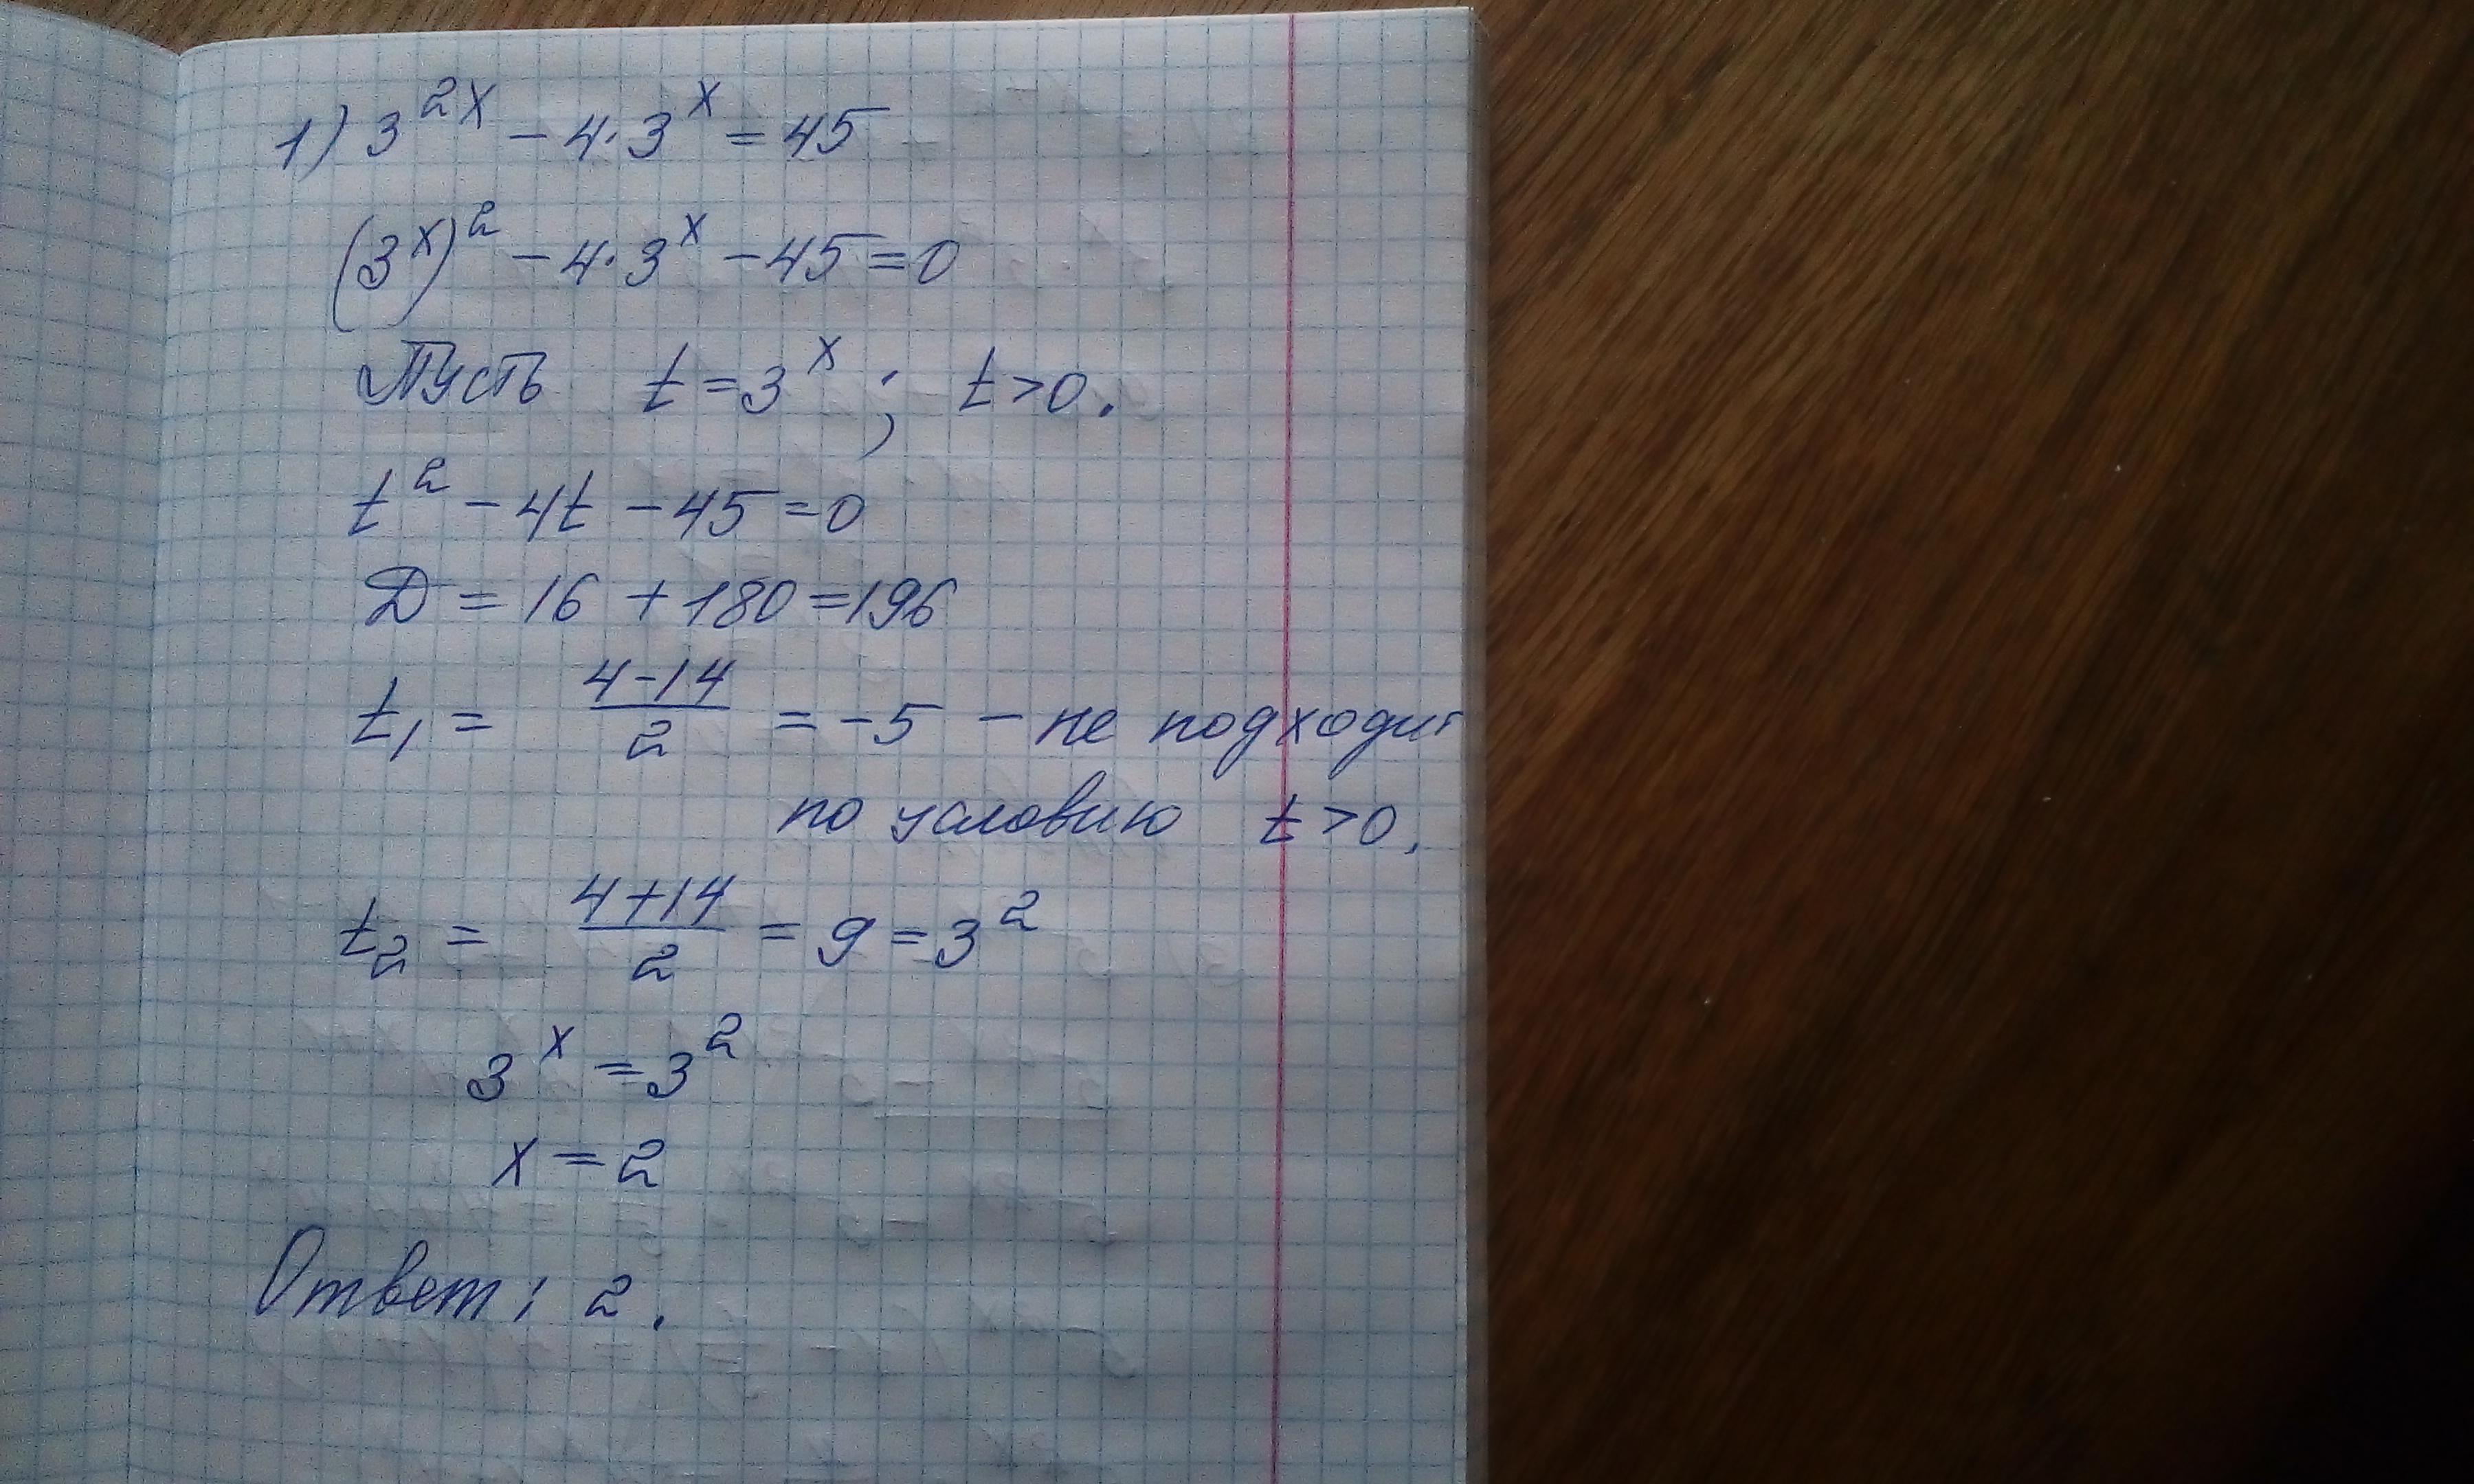 1) 3^{2x} - 4·3^x = 45
(3^x)^2 - 4·3^x - 45 = 0
Пусть t = 3^x ; t > 0.
t^2 - 4t - 45 = 0
Д = 16 + 180 = 196
t_1 = \frac{4-14}{2} = -5 - не подходит
по условию t > 0.
t_2 = \frac{4+14}{2} = 9 = 3^2
3^x = 3^2
x = 2
Ответ: 2.